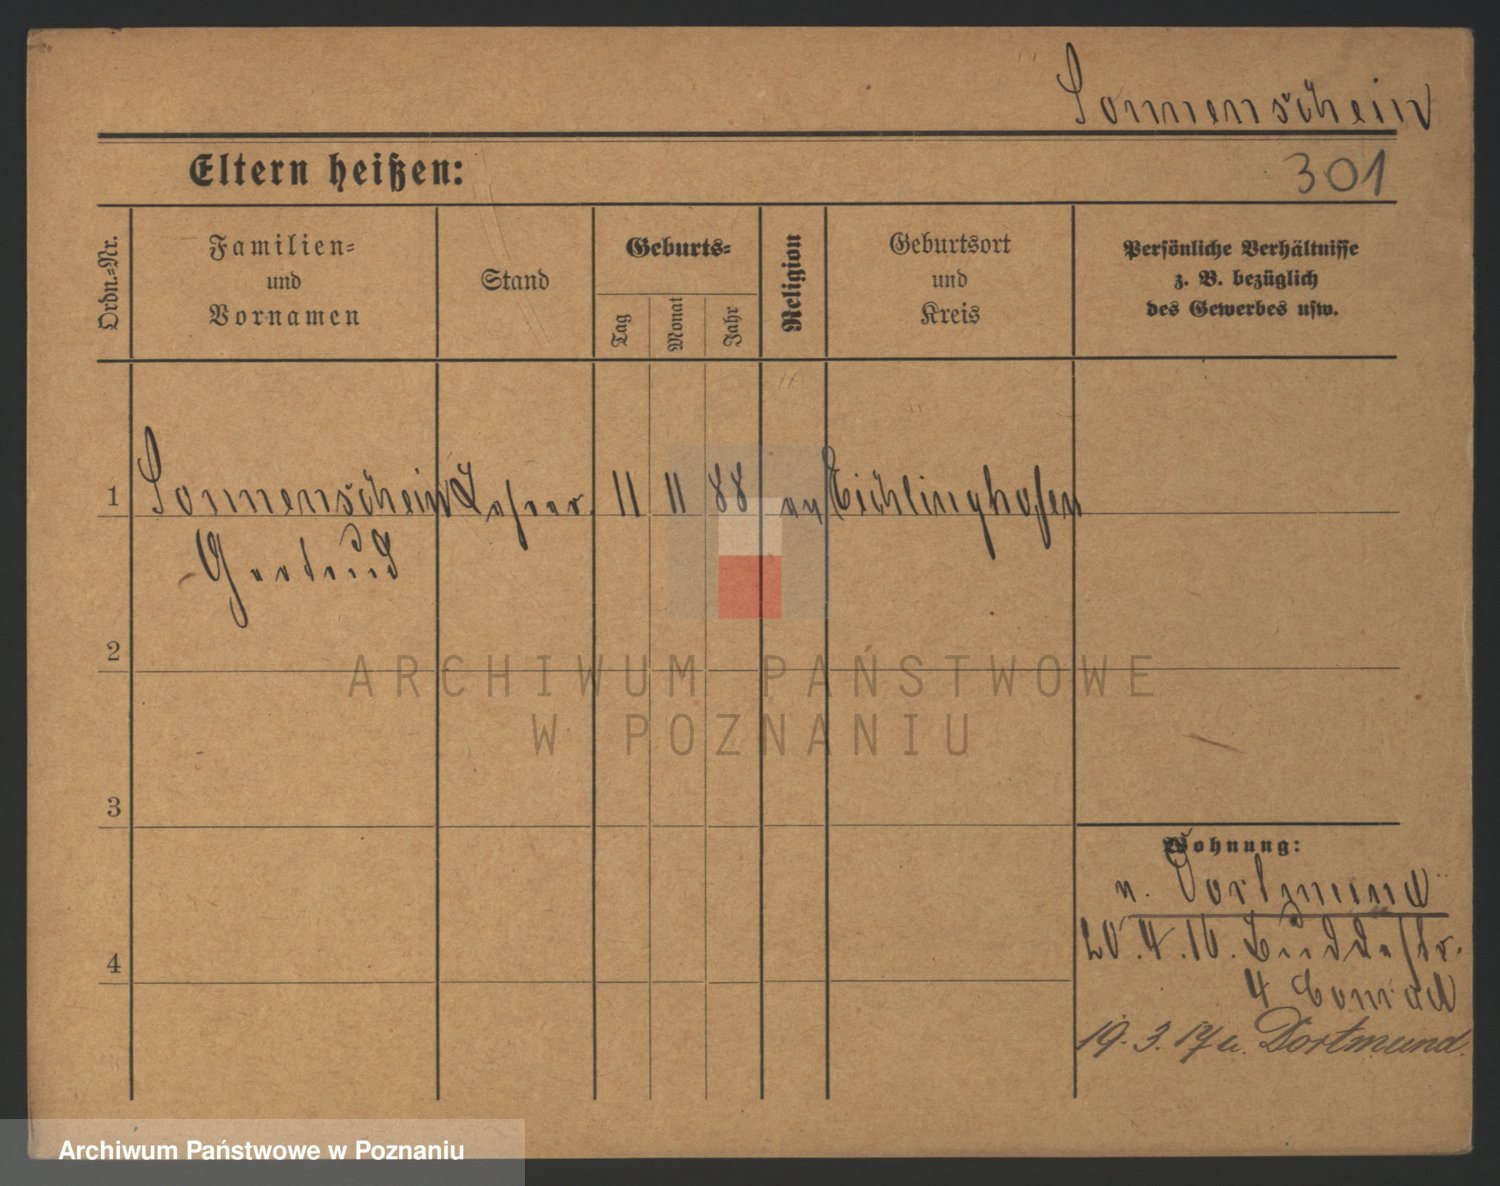 Sonnenschein
Eltern heißen:
301
Ordn.-Nr.
Familien-
und
Vornamen
Stand
Geburts-
Tag
Monat
Jahr
Religion
Geburtsort
und
Kreis
Persönliche Verhältnisse
z. B. bezüglich
des Gewerbes usw.
1 Sonnenschein Lehrer. 11 11 88 ev Eichlinghofen
Gertrud
2
ARCHIWUM PAŃSTWOWE
W POZNANIU
3
Wohnung:
n. Dortmund
20.4.16. Buddestr.
4 Conrad
4
19.3.17 n. Dortmund.
Archiwum Państwowe w Poznaniu